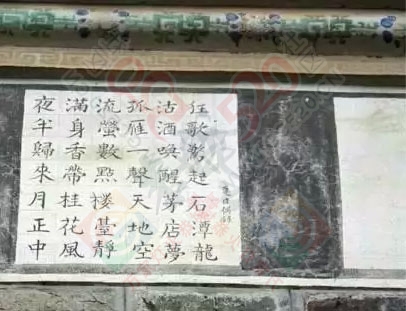 夜半歸來月正中
滿身香帶桂花風
流螢數點樓臺靜
孤雁一聲天地空
沽酒喚醒茅店夢
狂歌驚起石潭龍